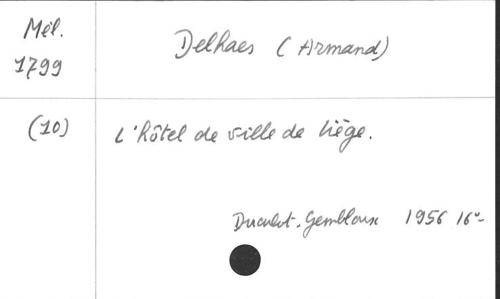 Mél.
1799
Delhaes (Armand)
(10)
L'hôtel de ville de Liège.
Duculot. Gembloux 1956 16°-